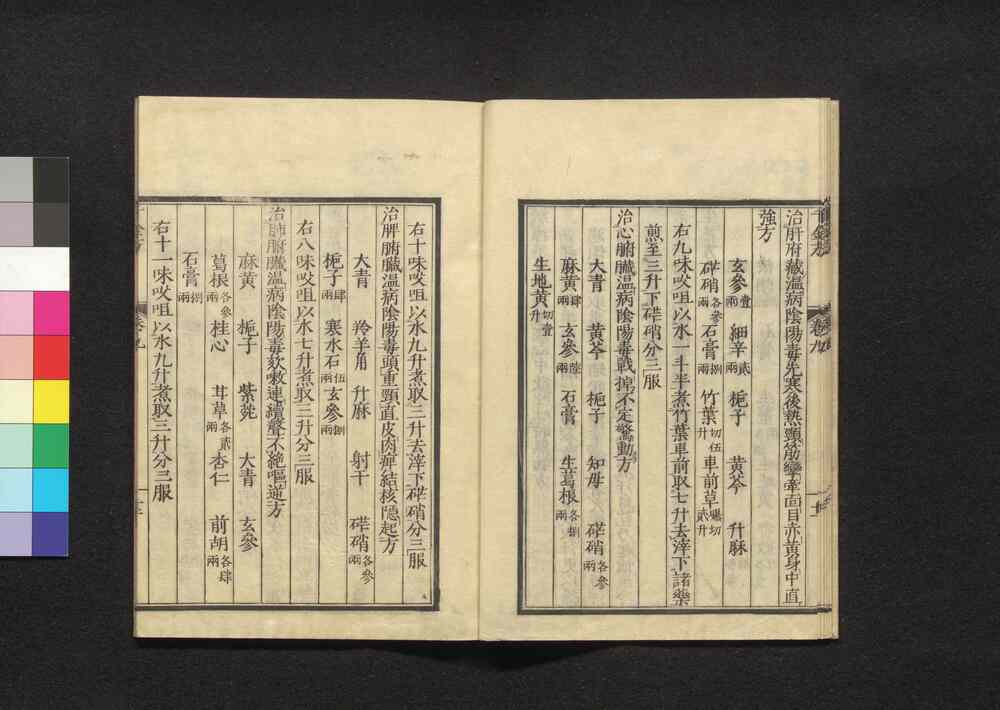 治肝府藏温病陰陽毒先寒後熱頸筋攣牽面目赤黄身中直
強方
玄參壹兩 細辛貳兩 梔子 黄芩 升麻
硭硝各參兩 石膏捌兩 竹葉切伍升 車前草曬切貳升
右九味㕮咀以水一斗半煮竹葉車前取七升去滓下諸藥
煎至三升下硭硝分三服
治心腑臟温病陰陽毒戰掉不定驚動方
大青 黄芩 梔子 知母 硭硝各參兩
麻黄肆兩 玄參陸兩 石膏 生葛根各捌兩
生地黄切壹升
右十味㕮咀以水九升煮取三升去滓下硭硝分三服
治脾腑臟温病陰陽毒頭重頸直皮肉痺結核隱起方
大青 羚羊角 升麻 射干 硭硝各參兩
梔子肆兩 寒水石伍兩 玄參捌兩
右八味㕮咀以水七升煮取三升分三服
治肺腑臟温病陰陽毒欬嗽連續聲不絶嘔逆方
麻黄 梔子 紫菀 大青 玄參
葛根各參兩 桂心 甘草各貳兩 杏仁 前胡各肆兩
石膏捌兩
右十一味㕮咀以水九升煮取三升分三服